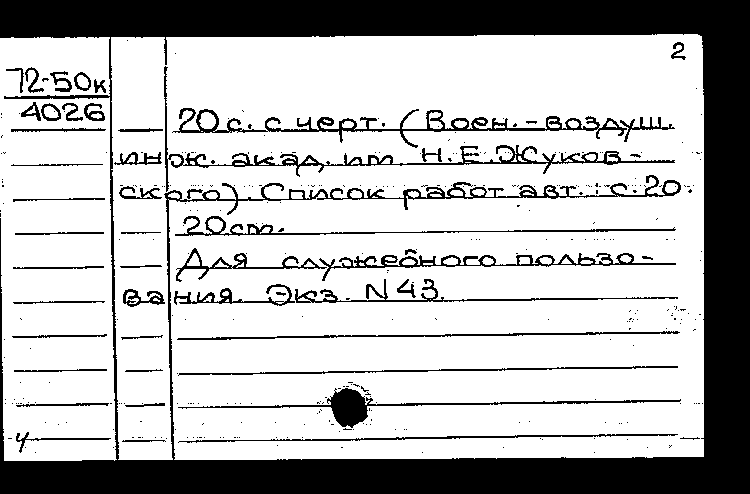 2
72-50к
4026
20 с. с черт. (Воен.-воздуш.
инж. акад. им. Н.Е.Жуков-
ского). Список работ авт.: с.20.
20см.
Для служебного пользо-
вания. Экз. N 43.
ч